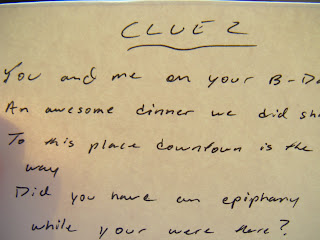 CLUE 2
You and me on your B-Da
An awesome dinner we did sh
To this place downtown is the
way
Did you have an epiphany
while your were there?